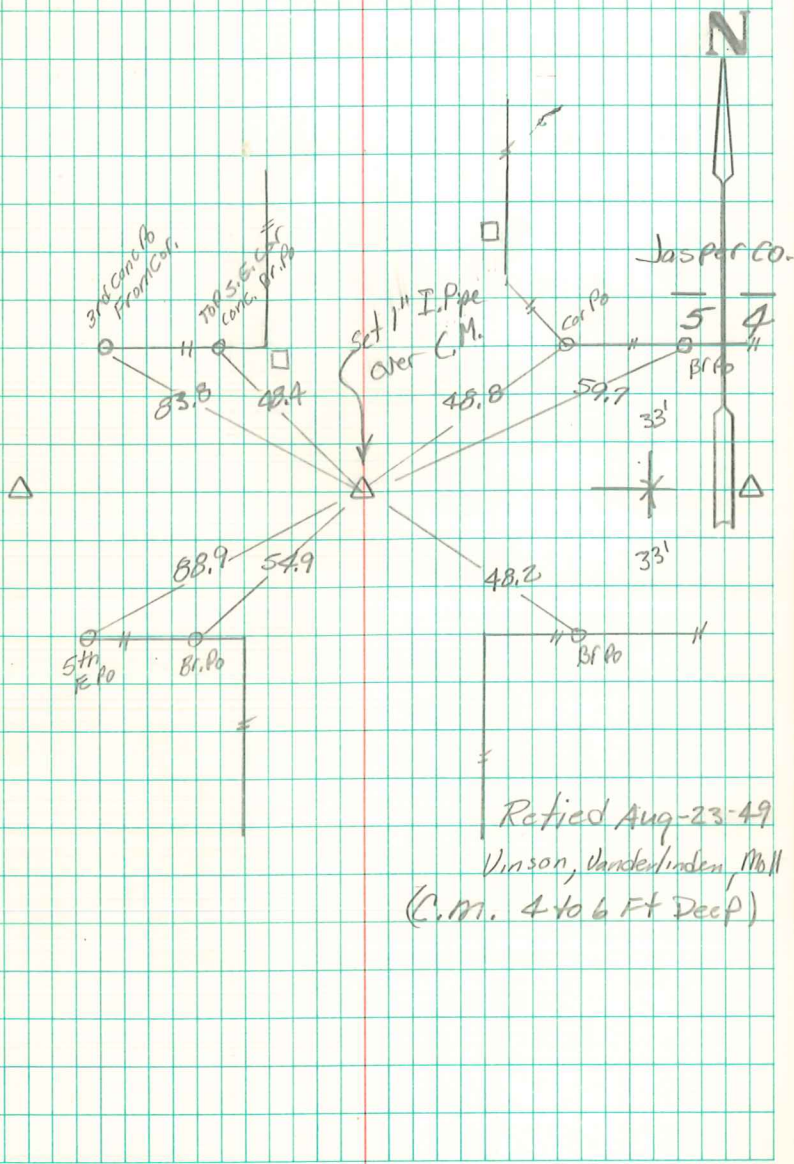 N
Jasper Co.
5 4
3rd Conc Po
From Cor.
Top S.E. Cor
Conc. Br. Po
Set 1" I. Pipe
over C.M.
Cor Po
Br Po
83.8
48.4
48.8
59.7
33'
33'
88.9
54.9
48.2
5th
E Po
Br. Po
Br Po
Retied Aug-23-49
Vinson, Vanderlinden, Moll
(C.M. 4 to 6 Ft Deep)